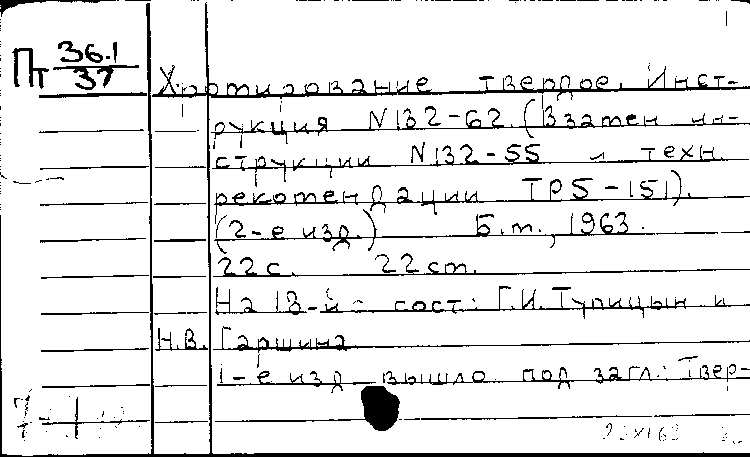 Пт 36.1/37
Хромирование твердое. Инст-
рукция N132-62. (Взамен ин-
струкции N132-55 и техн.
рекомендации ТР5-151).
(2-е изд.) Б.м., 1963.
22 с. 22 см.
На 18-й с сост: Г.И. Тупицын и
Н.В. Гаршина
1-е изд вышло под загл.: Твер-